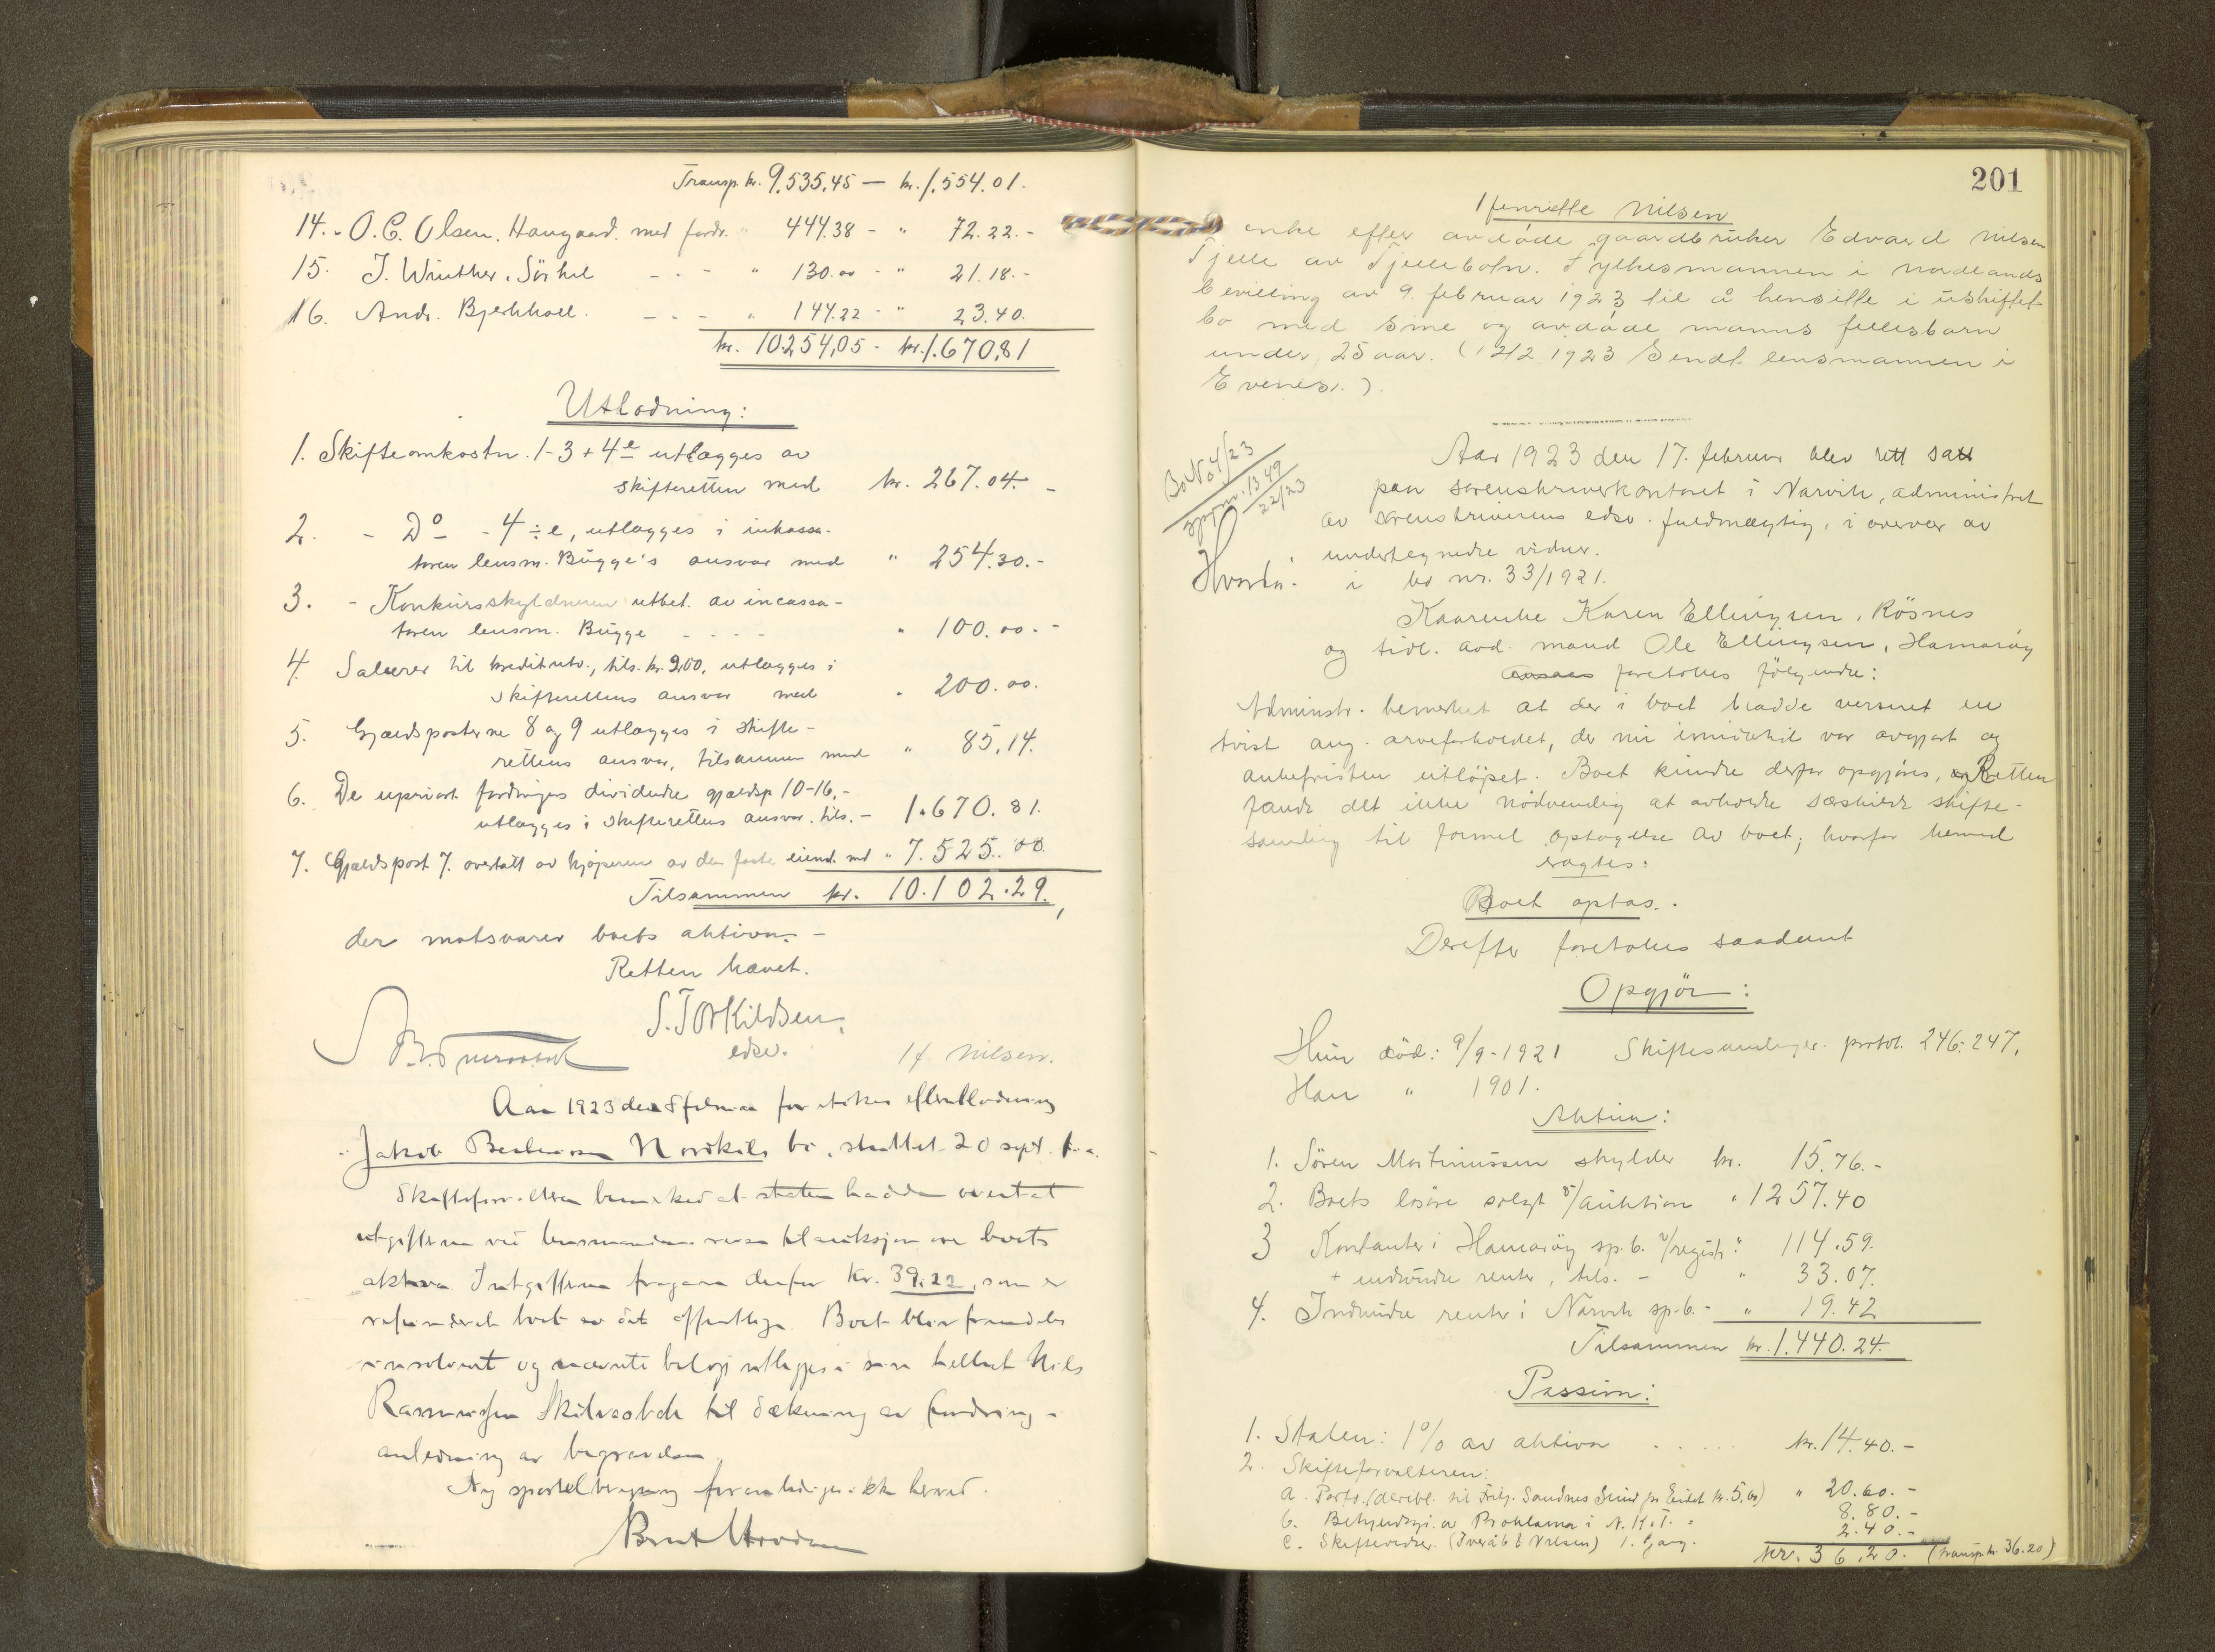 Transp. kr. 9.535.45 — kr. 1.554.01.
14. - O. C. Olsen. Haugaard. med fordr. " 444.38 - " 72.22. -
15. J. Winther. Sörkil - - - " 130.00 - " 21.18. -
16. Andr. Bjerkholl. - - - " 144.22 - " 23.40.
kr. 10254,05 - kr. 1.670,81
Utlodning:
1. Skifteomkostn. 1-3 + 4e utlægges av
skifteretten med kr. 267.04. -
2. - Do - 4 ÷ e, utlægges i inkassa-
toren lensm. Bugge's ansvar med " 254.30. -
3. - Konkursskyldneren utbet. av incassa-
toren lensm. Bugge - - - - " 100.00. -
4. Salærer til kreditutv., tils. kr. 200, utlægges i
skifterettens ansvar med " 200.00.
5. Gjældsposterne 8 og 9 utlægges i skifte-
rettens ansvar, tilsammen med " 85,14.
6. De upriort. fordringers dividende gjældsp. 10-16, -
utlægges i skifterettens ansvar. tils. - 1.670.81.
7. Gjældspost 7. overtatt av kjøperen av den faste eiend. md " 7.525.00
Tilsammen kr. 10.102.29.,
der motsvarer boets aktiva. -
Retten hævet.
S. Torkildsen,
edsv.
H Nilsen.
Aar 1923 den 8 februar foretokes efterutlodning
i Jakob Nordkils bo, sluttet 20 sept. f. a.
Skifteforvalteren bemerket at staten hadde overtat
utgifterne ved lensmandens reise til auksjon over boets
aktiva. I utgifterne fragaar derfor kr. 39.22, som er
refunderet boet av det offentlige. Boet blir fremdeles
insolvent og nævnte beløp utlægges i sin helhet Nils
Rasmussen til dækning av fordring i
anledning av begravelsen.
Ny sportelberegning foranlediges ikke herved.
201
Henriette Nilsen
enke efter avdøde gaardbruker Edvard Nilsen
Tjelle av Tjellebotn. Fylkesmannen i Nordlands
bevilling av 9. februar 1923 til å hensitte i uskiftet
bo med sine og avdøde manns fellesbarn
under 25 aar. (12/2 1923 Sendt lensmannen i
Evenes.).
Bo No 4/23
gpnr. 1349
22/23
Aar 1923 den 17. februar blev rett satt
paa sorenskriverkontoret i Narvik, administret
av sorenskriverens edsv. fuldmægtig, i overvær av
undertegnede vidner.
Hvorda. i bo nr. 33/1921.
Kaarenke Karen Ellingsen, Rösnes
og tidl. avd. mand Ole Ellingsen, Hamaröy
foretokes følgende:
Administr. bemerket at der i boet hadde verseret en
tvist ang. arveforholdet, der nu imidlertid var avgjort og
ankefristen utløpet. Boet kunde derfor opgjøres, Retten
fandt det ikke nödvendig at avholde særskilt skifte-
samling til formel optagelse av boet; hvorfor herved
eragtes:
Boet optas.
Derefter foretokes saadant
Opgjör:
Hun död: 9/9-1921 Skiftesamlinger. protok. 246-247.
Han " 1901.
Aktiva:
1. Sören Martinussen skylder kr. 15.76. -
2. Boets lösöre solgt v/auktion " 1257.40
3 Kontanter i Hamaröy sp.b. v/registr. " 114.59.
+ indvundne renter, tils. - " 33.07.
4. Indvundne renter i Narvik sp.b. - " 19.42
Tilsammen kr. 1.440.24.
Passiva:
1. Staten: 1% av aktiva . . . . . kr. 14.40. -
2. Skifteforvalteren:
a. Porto. (deribl. til Sandnes Smid pr Eidet kr. 5.60) " 20.60. -
b. Bekjendtgj. av Proklama i N.K.T. " 8.80. -
c. Skiftevidner. 1. gang. 2.40. -
kr. 36.20. (transp. kr. 36.20)